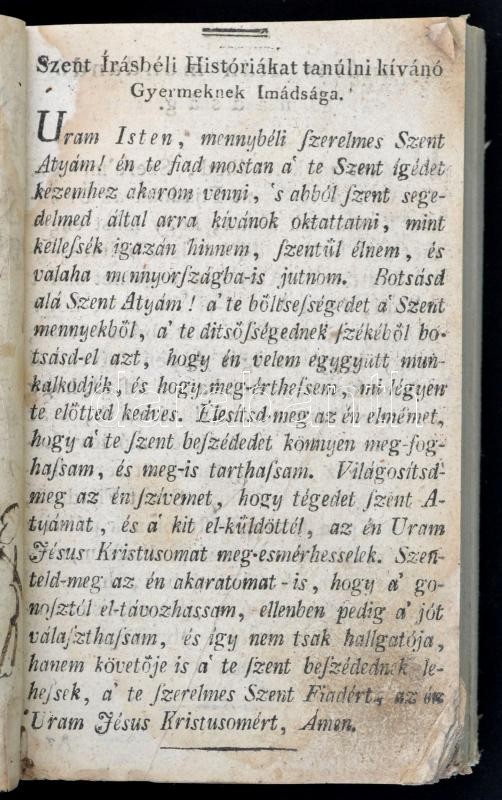 Szent Írásbéli Históriákat tanúlni kívánó
Gyermeknek Imádsága.
Uram Isten, mennybéli ſzerelmes Szent
Atyám! én te fiad mostan á te Szent ígédet
kezemhez akarom venni, 's abból ſzent sege-
delmed által arra kívánok oktattatni, mint
kelleſsék igazán hinnem, ſzentűl élnem, és
valaha mennyorſzágba-is jutnom. Botsásd
alá Szent Atyám! á te bőltseſségedet á Szent
mennyekből, á te ditsőſségednek ſzékéből bo-
tsásd-el azt, hogy én velem egygyütt mun-
kálkodjék, és hogy meg-értheſsem, mi légyen
te előtted kedves. Élesítsd-meg az én elmémet,
hogy á te ſzent beſzédedet könnyen meg-fog-
haſsam, és meg-is tarthaſsam. Világosítsd-
meg az én ſzívemet, hogy tégedet ſzent A-
tyámat, és á kit el-küldöttél, az én Uram
Jésus Kristusomat meg-esmérhesselek. Szen-
teld-meg az én akaratomat-is, hogy á go-
noſztól el-távozhassam, ellenben pedig á jót
válaſzthaſsam, és így nem tsak hallgatója,
hanem követője is á te ſzent beſzédednek le-
heſsek, á te ſzerelmes Szent Fiadért, az én
Uram Jésus Kristusomért, Amen.